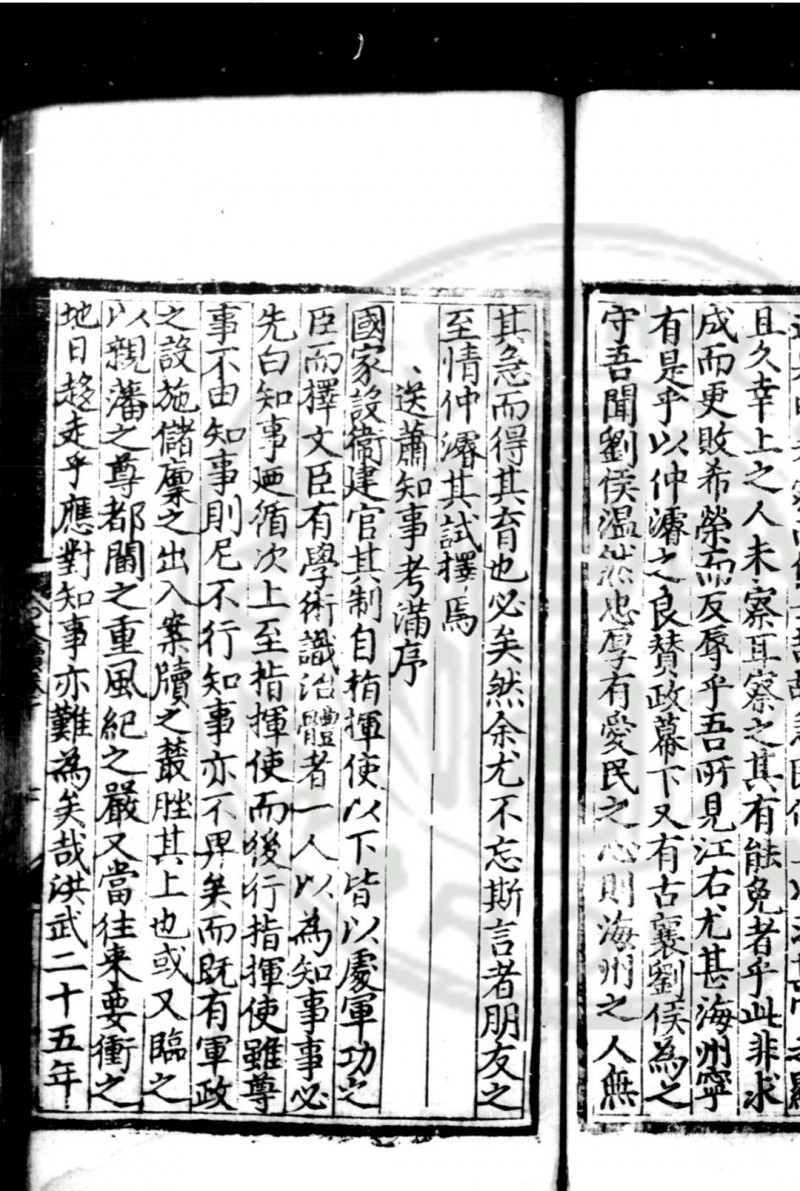 且久幸上之人未察耳察之其有能免者乎此非求
成而更敗希榮而反辱乎吾所見江右尤甚海州寧
有是乎以仲濬之良贊政幕下又有古襄劉侯為之
守吾聞劉侯溫然忠厚有愛民之心則海州之人無
其急而得其育也必矣然余尤不忘斯言者朋友之
至情仲濬其試擇焉
送蕭知事考滿序
國家設衛建官其制自指揮使以下皆以處軍功之
臣而擇文臣有學術識治體者一人以為知事事必
先白知事廼循次上至指揮使而後行指揮使雖尊
事不由知事則尼不行知事亦不畀矣而既有軍政
之設施儲廩之出入案牘之叢脞其上也或又臨之
以親藩之尊都閫之重風紀之嚴又當往來要衝之
地日趍走乎應對知事亦難為矣哉洪武二十五年